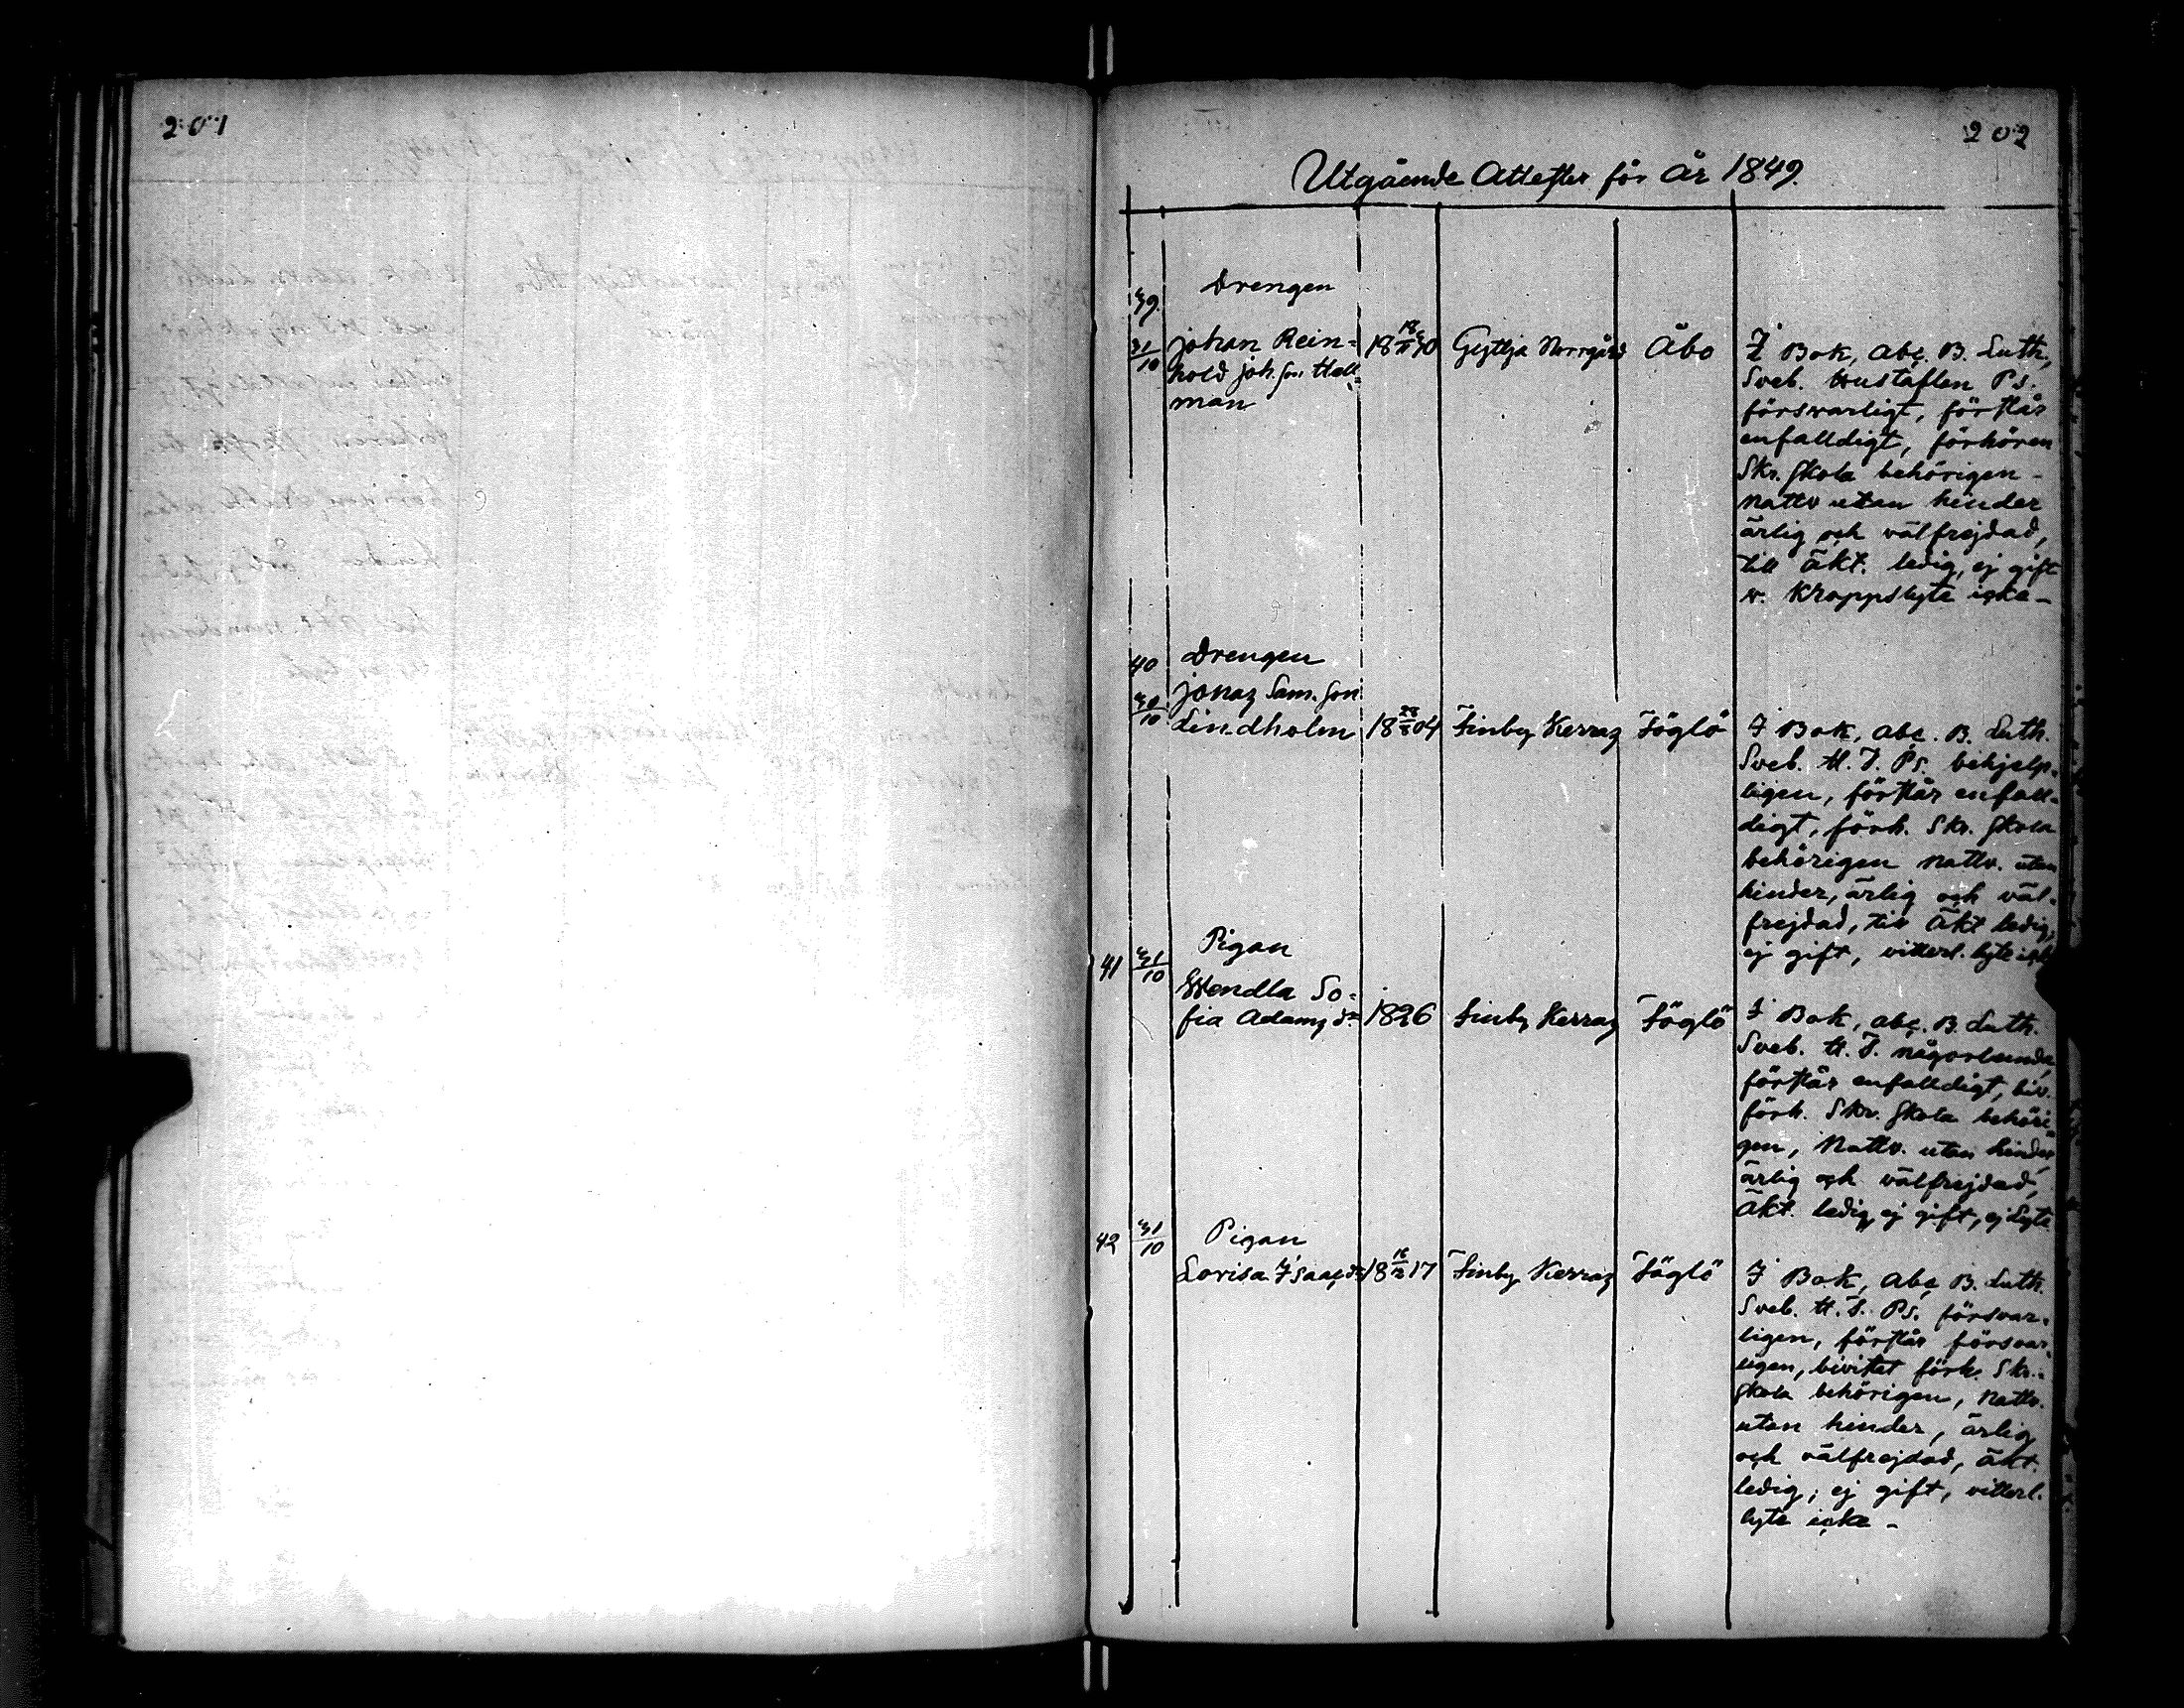 201
202
Utgående Attester för År 1849.
39. Drengen
31/10 Johan Rein= 18 18/11 30 Gyttja Norrgård Åbo I Bok, abc. B. Luth,
hold Joh.son Hell= Sveb. Hustaflen Ps.
man försvarligt, förstår
enfalldigt, förhören
Skr. skola behörigen -
Nattv utan hinder
ärlig och välfrejdad,
till äkt. ledig, ej gift
v. Kroppslyte icke -
40 Drengen
30/10 Jonaz Sam.son
Lindholm 18 04 Finby Kerraz Föglö I Bok, abc. B. Luth.
Sveb. H. T. Ps. behjelp-
ligen, förstår enfall-
digt, förh. Skr. skola
behörigen nattv. utan
hinder, ärlig och väl-
frejdad, till Äkt ledig,
ej gift, vitterl. lyte ick
41 31/10 Pigan
Wendla So=
fia Adamz dr 1826 Finby Kerraz Föglö I Bok, abc. B. Luth.
Sveb. H. T. någorlunda,
förstår enfalldigt, biv.
förh. Skr. skola behöri
gen, Nattv. utan hinder,
ärlig och välfrejdad,
Äkt. ledig, ej gift, ej Lyte
42 31/10 Pigan
Lovisa Isaacdr 18 16/12 17 Finby Kerraz Föglö I Bok, abc B. Luth.
Sveb. H. T. Ps. försvar-
ligen, förstår försvar
ligen, bivistat förh. Skr.-
skola behörigen, Nattv.
utan hinder, ärlig
och välfrejdad, äkt.
ledig, ej gift, vitterl.
lyte icke -